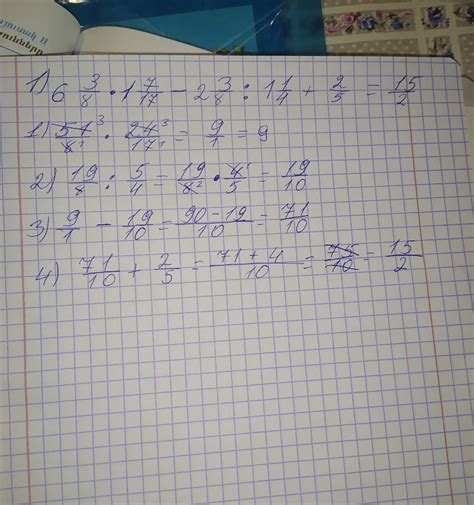 այստակ II
րուններ
1) 6 3/8 · 1 7/17 - 2 3/8 : 1 1/4 + 2/5 = 15/2
1) 51³/8¹ · 24³/17¹ = 9/1 = 9
2) 19/8 : 5/4 = 19/8² · 4¹/5 = 19/10
3) 9/1 - 19/10 = 90-19/10 = 71/10
4) 71/10 + 2/5 = 71+4/10 = 75/10 = 15/2